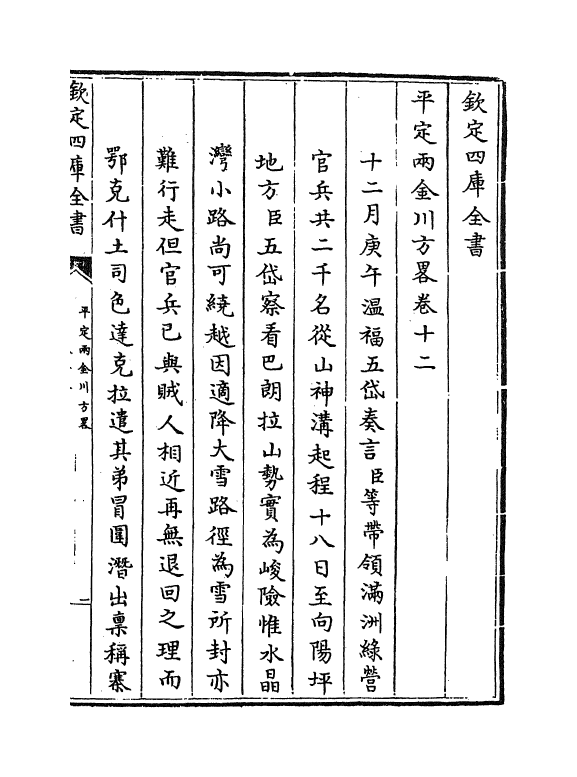 欽定四庫全書
平定兩金川方畧卷十二
十二月庚午溫福五岱奏言臣等帶領滿洲綠營
官兵共二千名從山神溝起程十八日至向陽坪
地方臣五岱察看巴朗拉山勢實為峻險惟水晶
灣小路尚可繞越因適降大雪路徑為雪所封亦
難行走但官兵已與賊人相近再無退回之理而
鄂克什土司色達克拉遣其弟冒圍潛出稟稱寨
欽定四庫全書
平定兩金川方畧